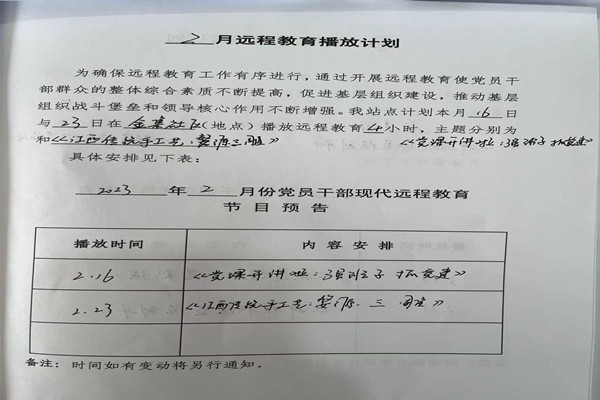 2月远程教育播放计划
为确保远程教育工作有序进行，通过开展远程教育使党员干
部群众的整体综合素质不断提高，促进基层组织建设，推动基层
组织战斗堡垒和领导核心作用不断增强。我站点计划本月16日
与23日在金集社区(地点)播放远程教育4小时，主题分别为
《党课开讲啦：强班子 抓党建》
和《江西传统手工艺：婺源三雕》
具体安排见下表：
2023年2月份党员干部现代远程教育
节目预告
播放时间 内容安排
2.16 《党课开讲啦：强班子 抓党建》
2.23 《江西传统手工艺：婺源三雕》
备注：时间如有变动将另行通知。